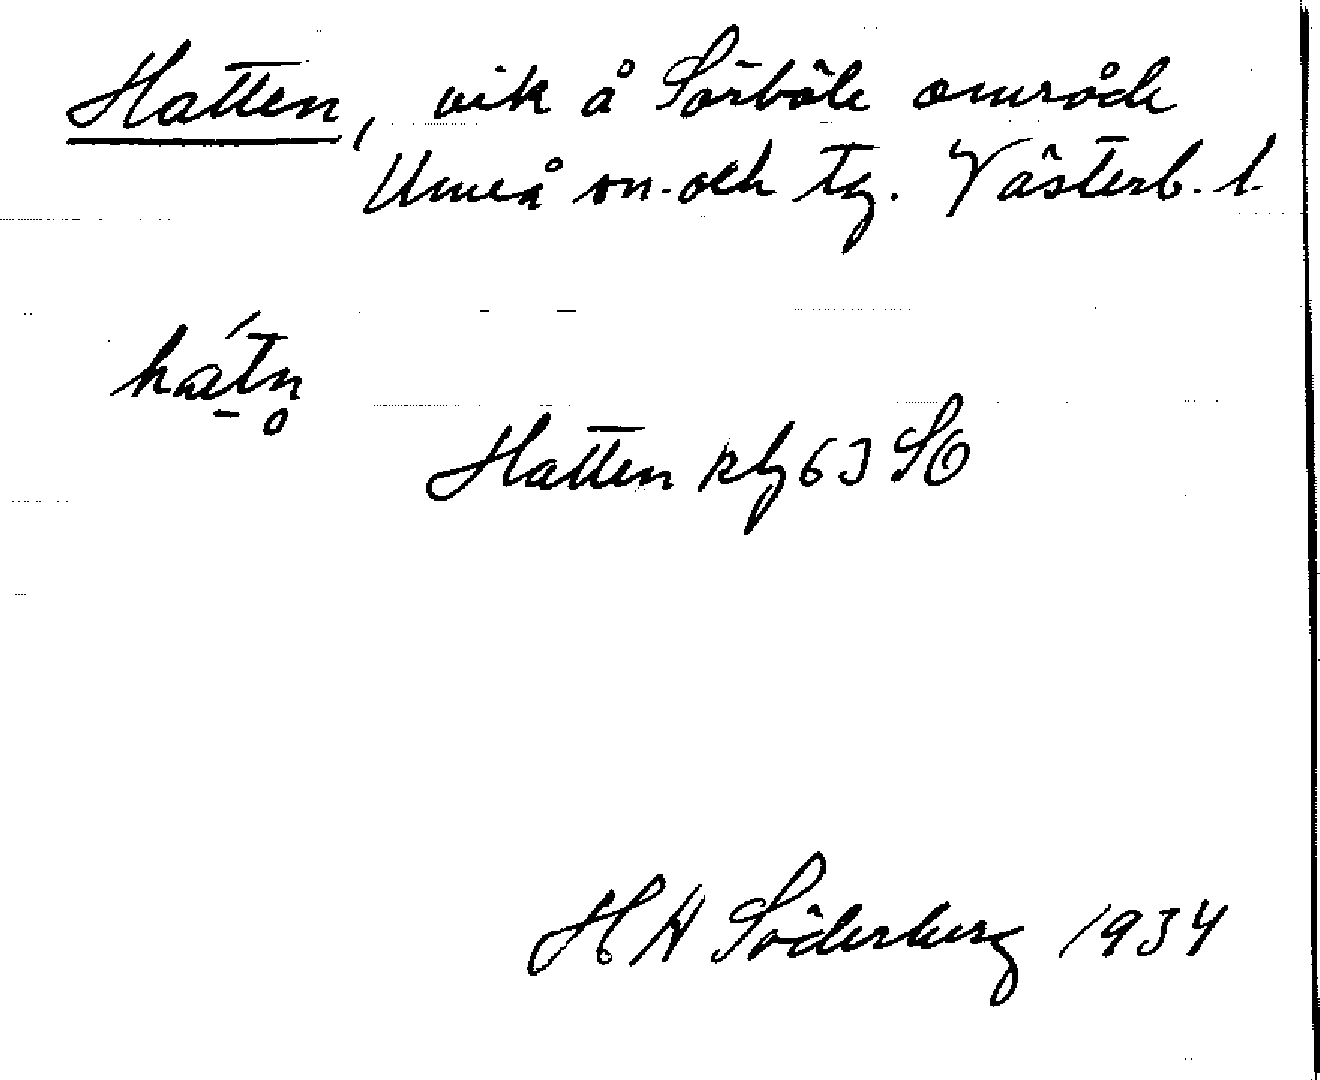 Hatten, vik å Sörböle område
Umeå sn. och tg. Västerb. l.
hát̠n̥
Hatten kbl 63 SO
H W Söderberg 1934